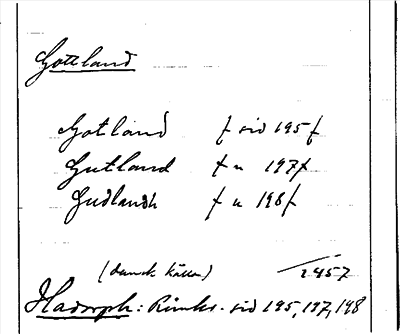 Gottland
Gotland f sid 195 f
Gutland f " 197 f
Gudlandh f " 198 f
(dansk källa) 1457
Hadorph: Rimkr. sid 195, 197, 198